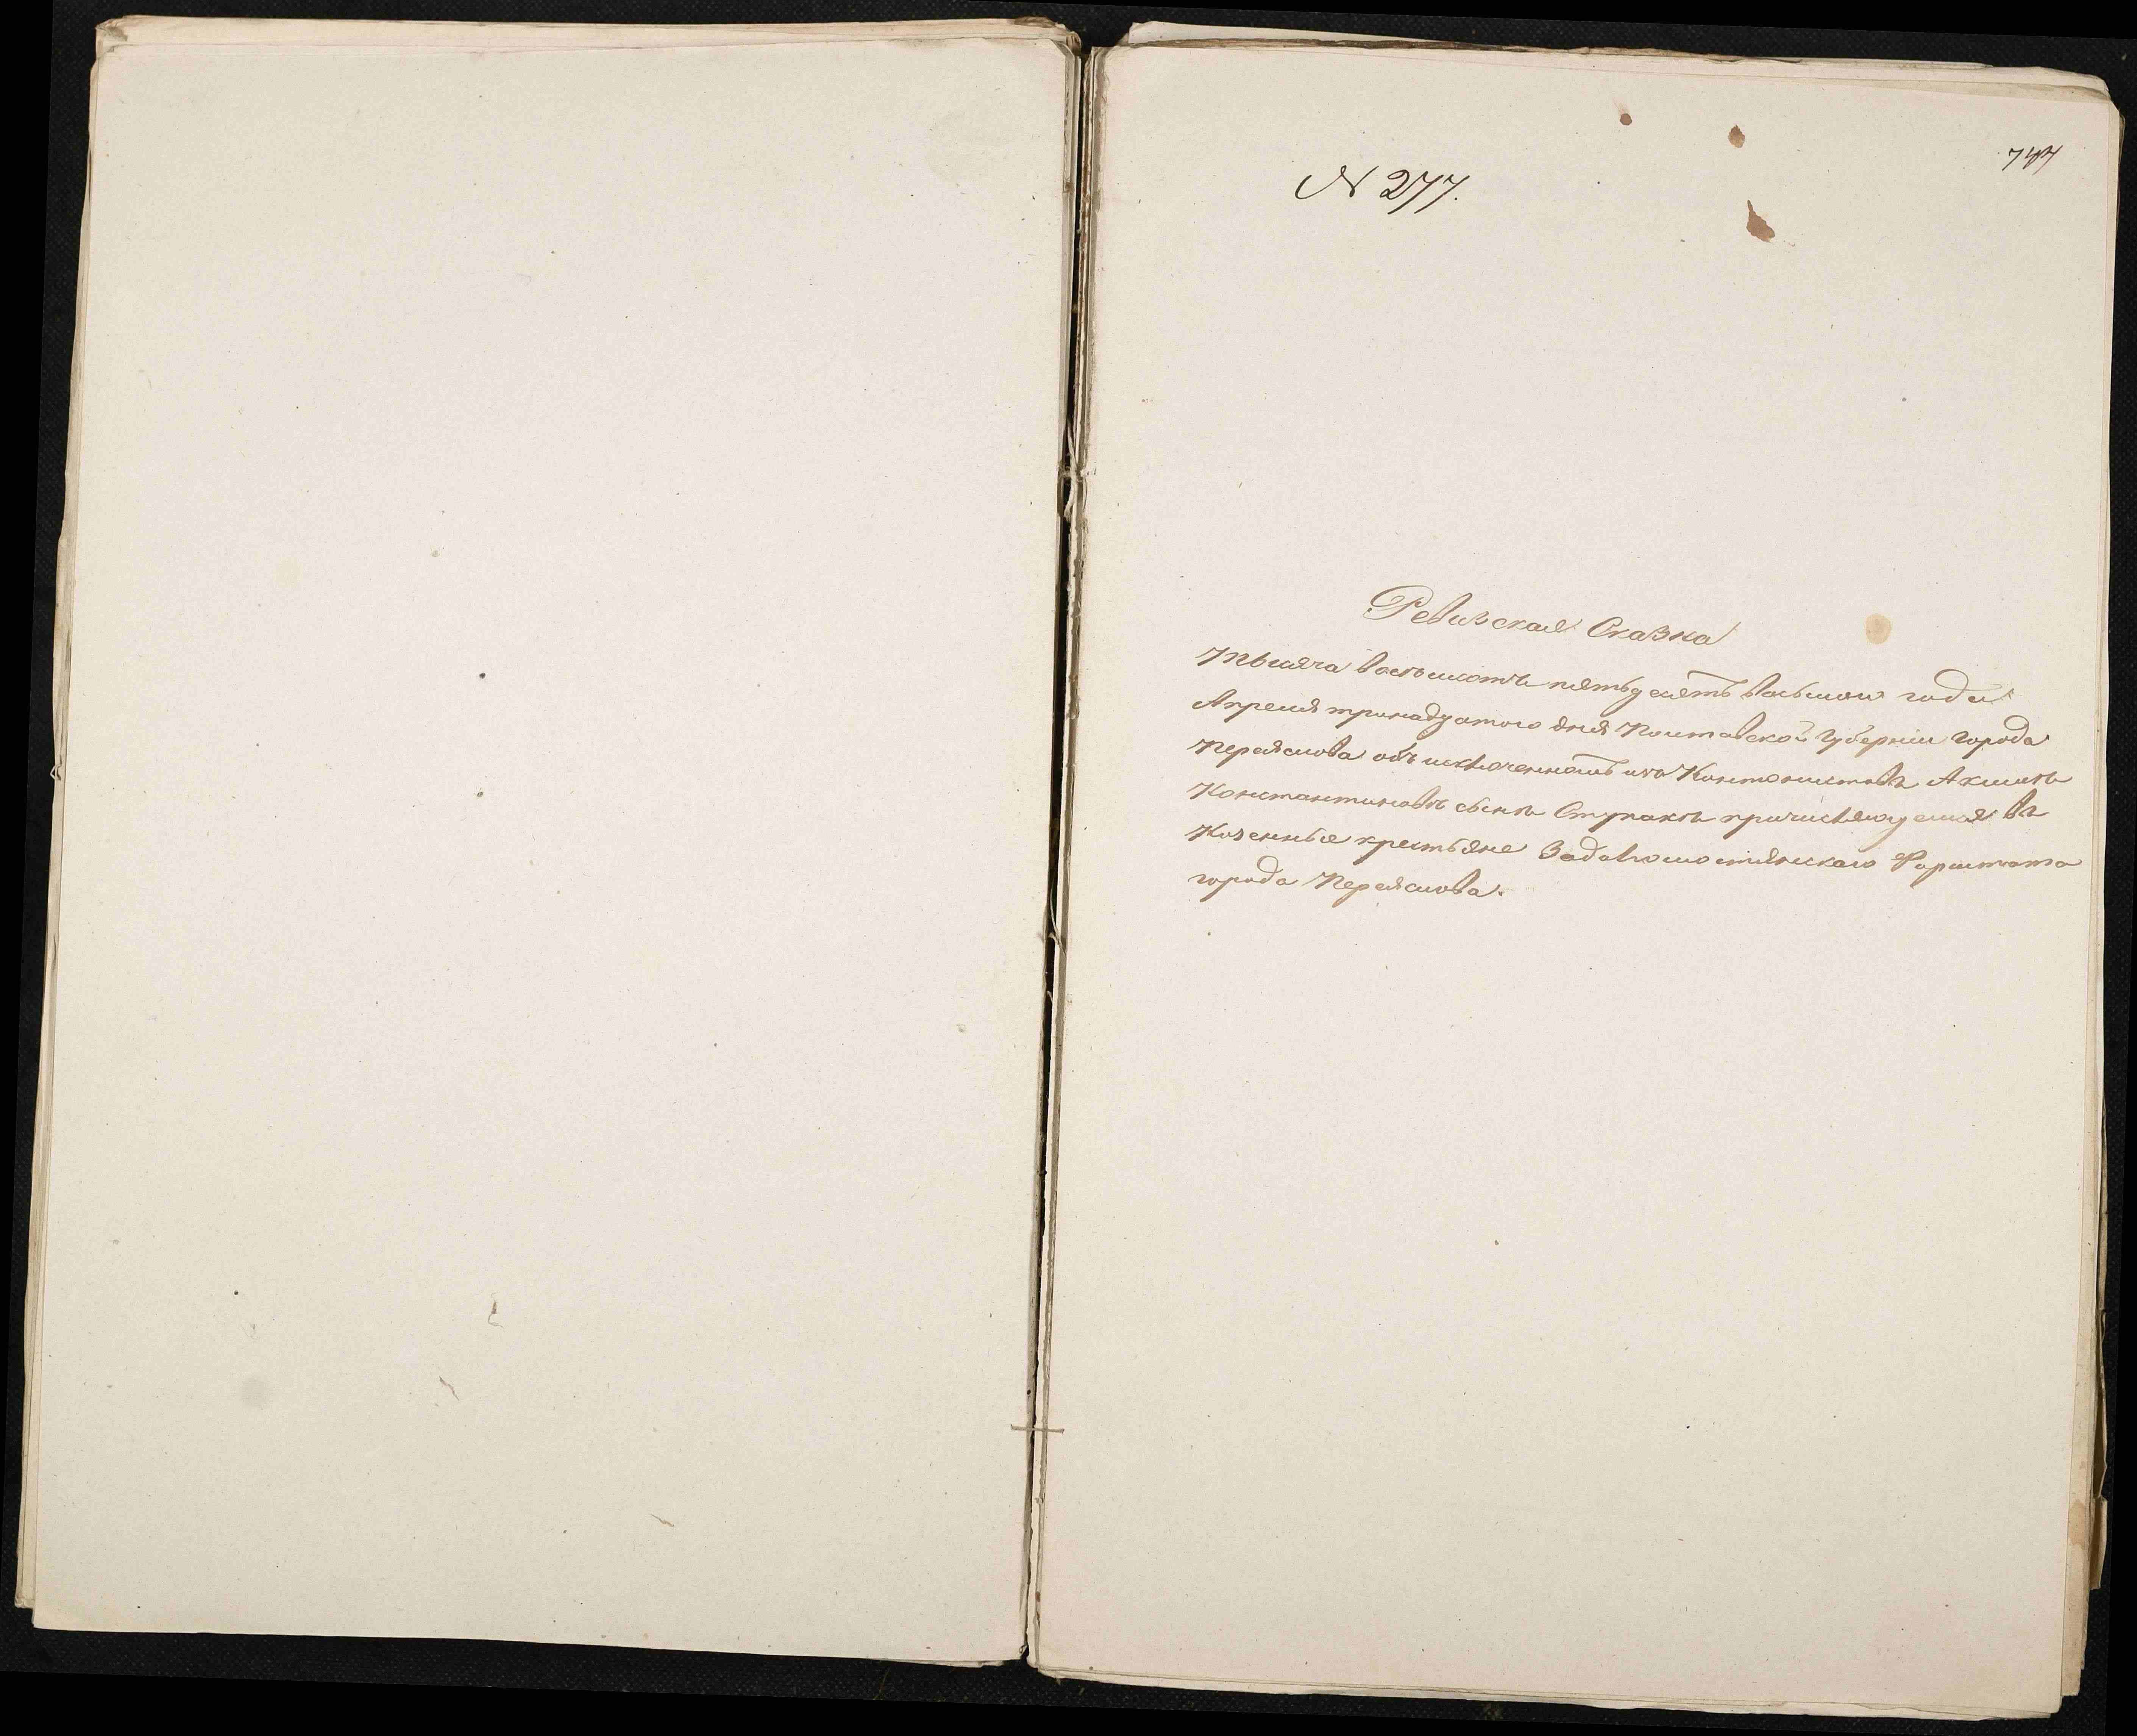 747
№ 277.
Ревизская Сказка
Тысяча восемьсотъ пятьдесятъ восьмого года
Апреля тринадцатого дня Полтавской Губерніи города
Переяслова объ исключенномъ изъ Кантонистовъ Акиму
Константиновъ сынъ Ступакъ причисляющемся въ
Казенные крестьяне Форштата
города Переяслова.